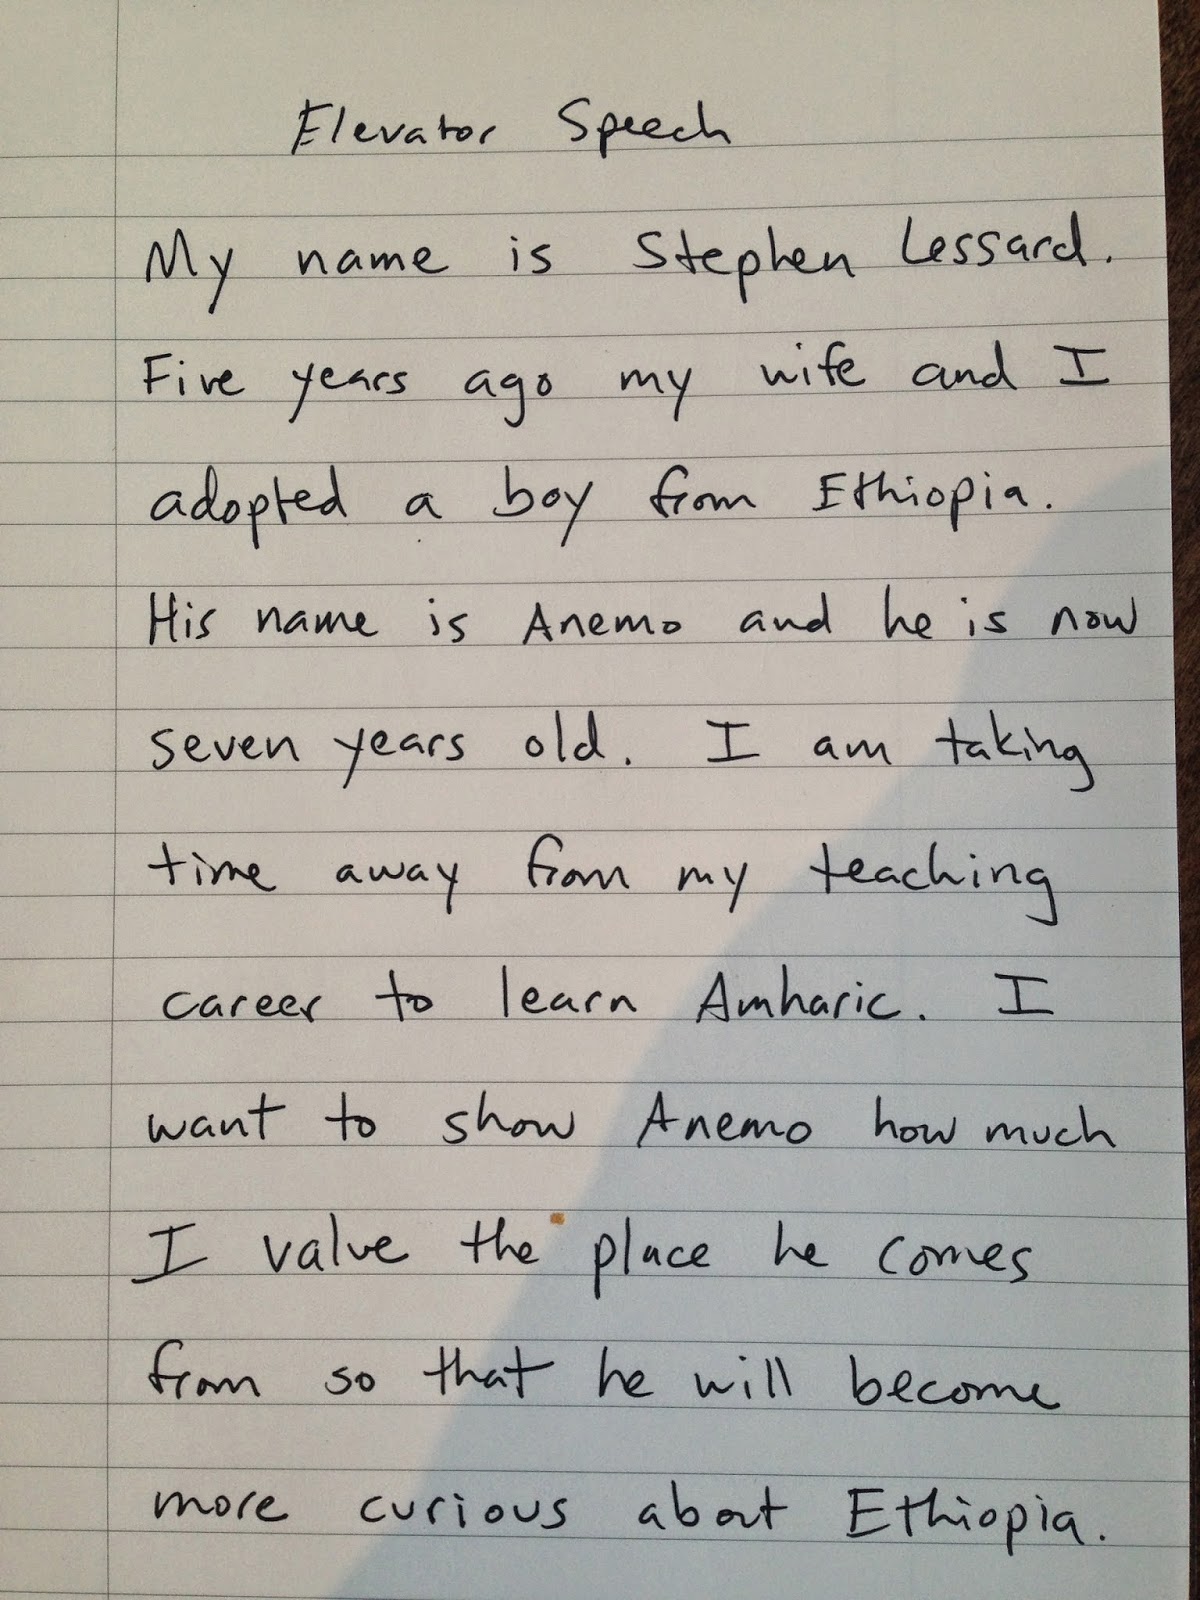 Elevator Speech
My name is Stephen Lessard.
Five years ago my wife and I
adopted a boy from Ethiopia.
His name is Anemo and he is now
seven years old. I am taking
time away from my teaching
career to learn Amharic. I
want to show Anemo how much
I value the place he comes
from so that he will become
more curious about Ethiopia.